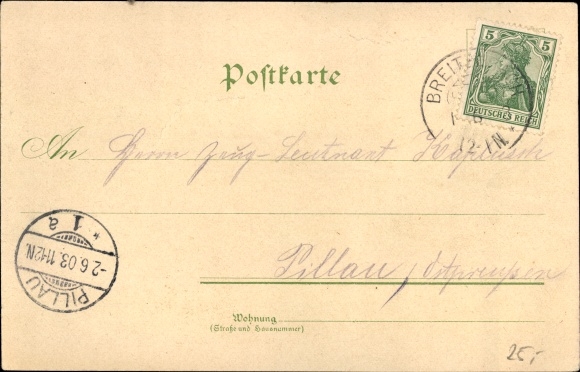 5 5
DEUTSCHES REICH
BREIT
12-1N.
Postkarte
An Herrn Zeug-Leutnant
Pillau, Ostpreußen
PILLAU
-2.6.03.11-12N.
* 1 a
Wohnung
(Straße und Hausnummer)
25,-